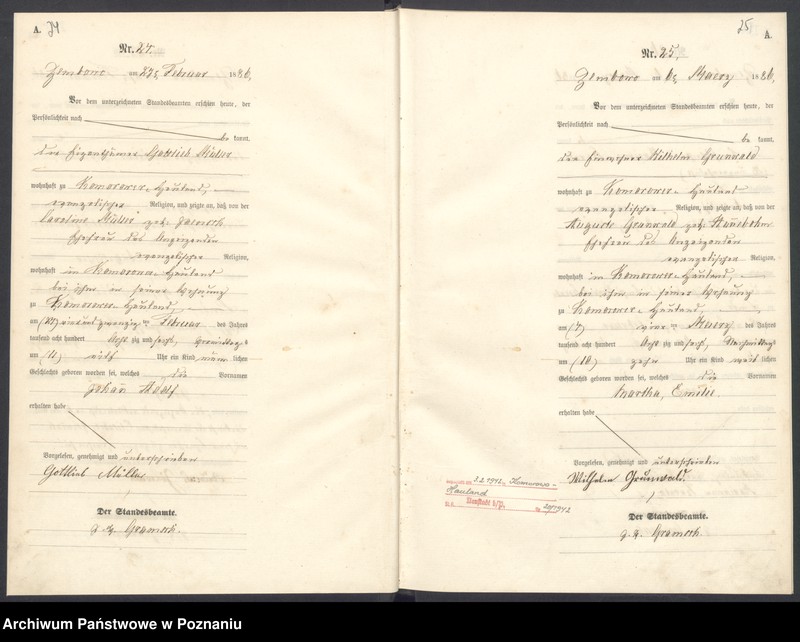 A. 24
Nr. 24.
Zembowo am 27 Februar 1886,
Vor dem unterzeichneten Standesbeamten erschien heute, der
Persönlichkeit nach
be kannt,
der Eigenthümer Gottlieb Müller
wohnhaft zu Komorowo-Hauland,
evangelischer Religion, und zeigte an, daß von der
Caroline Müller geb.
Ehefrau des Anzeigenden
evangelischer Religion,
wohnhaft in Komorowo-Hauland
bei ihm in seiner Wohnung
zu Komorowo-Hauland,
am Februar des Jahres
tausend acht hundert Acht zig und sechs, Vormittags
um (11) eilf Uhr ein Kind männ lichen
Geschlechts geboren worden sei, welches die Vornamen
Johan Adolf
erhalten habe
Vorgelesen, genehmigt und unterschrieben
Gottlieb Müller
Der Standesbeamte.
25
A.
Nr. 25,
Zembowo am 6 Maerz 1886,
Vor dem unterzeichneten Standesbeamten erschien heute, der
Persönlichkeit nach
be kannt,
der Einwohner Wilhelm Grunwald
wohnhaft zu Komorowo-Hauland
evangelischer Religion, und zeigte an, daß von der
Auguste Grunwald geb.
Ehefrau des Anzeigenden
evangelischer Religion,
wohnhaft in Komorowo-Hauland,
bei ihm in seiner Wohnung
zu Komorowo-Hauland,
am Maerz des Jahres
tausend acht hundert Acht zig und sechs, Nachmittags
um (10) zehn Uhr ein Kind weib lichen
Geschlechts geboren worden sei, welches die Vornamen
Martha, Emilie
erhalten habe
Vorgelesen, genehmigt und unterschrieben
Wilhelm Grunwald.
Der Standesbeamte.
1942 Komorowo-
Hauland
Neustadt b/P. 1942
Archiwum Państwowe w Poznaniu